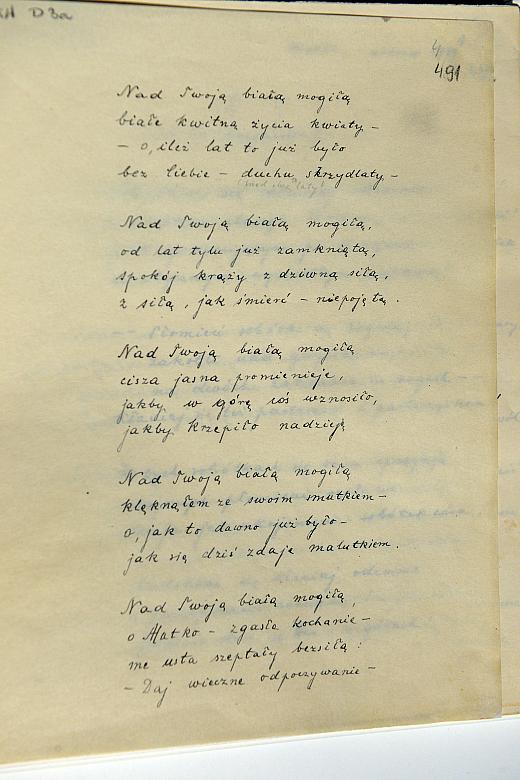 D3a
4
491
Nad Twoją białą mogiłą
białe kwitną życia kwiaty –
– o, ileż lat to już było
bez Ciebie – duchu skrzydlaty –
Nad Twoją białą mogiłą,
od lat tylu już zamkniętą,
spokój krąży z dziwną siłą,
z siłą, jak śmierć – niepojętą.
Nad Twoją białą mogiłą
cisza jasna promienieje,
jakby w górę coś wznosiło,
jakby krzepiło nadzieję
Nad Twoją białą mogiłą
klęknąłem ze swoim smutkiem –
o, jak to dawno już było –
jak się dziś zdaje malutkiem.
Nad Twoją białą mogiłą
o Matko – zgasłe Kochanie –
me usta szeptały bezsiłą:
– Daj wieczne odpoczywanie –